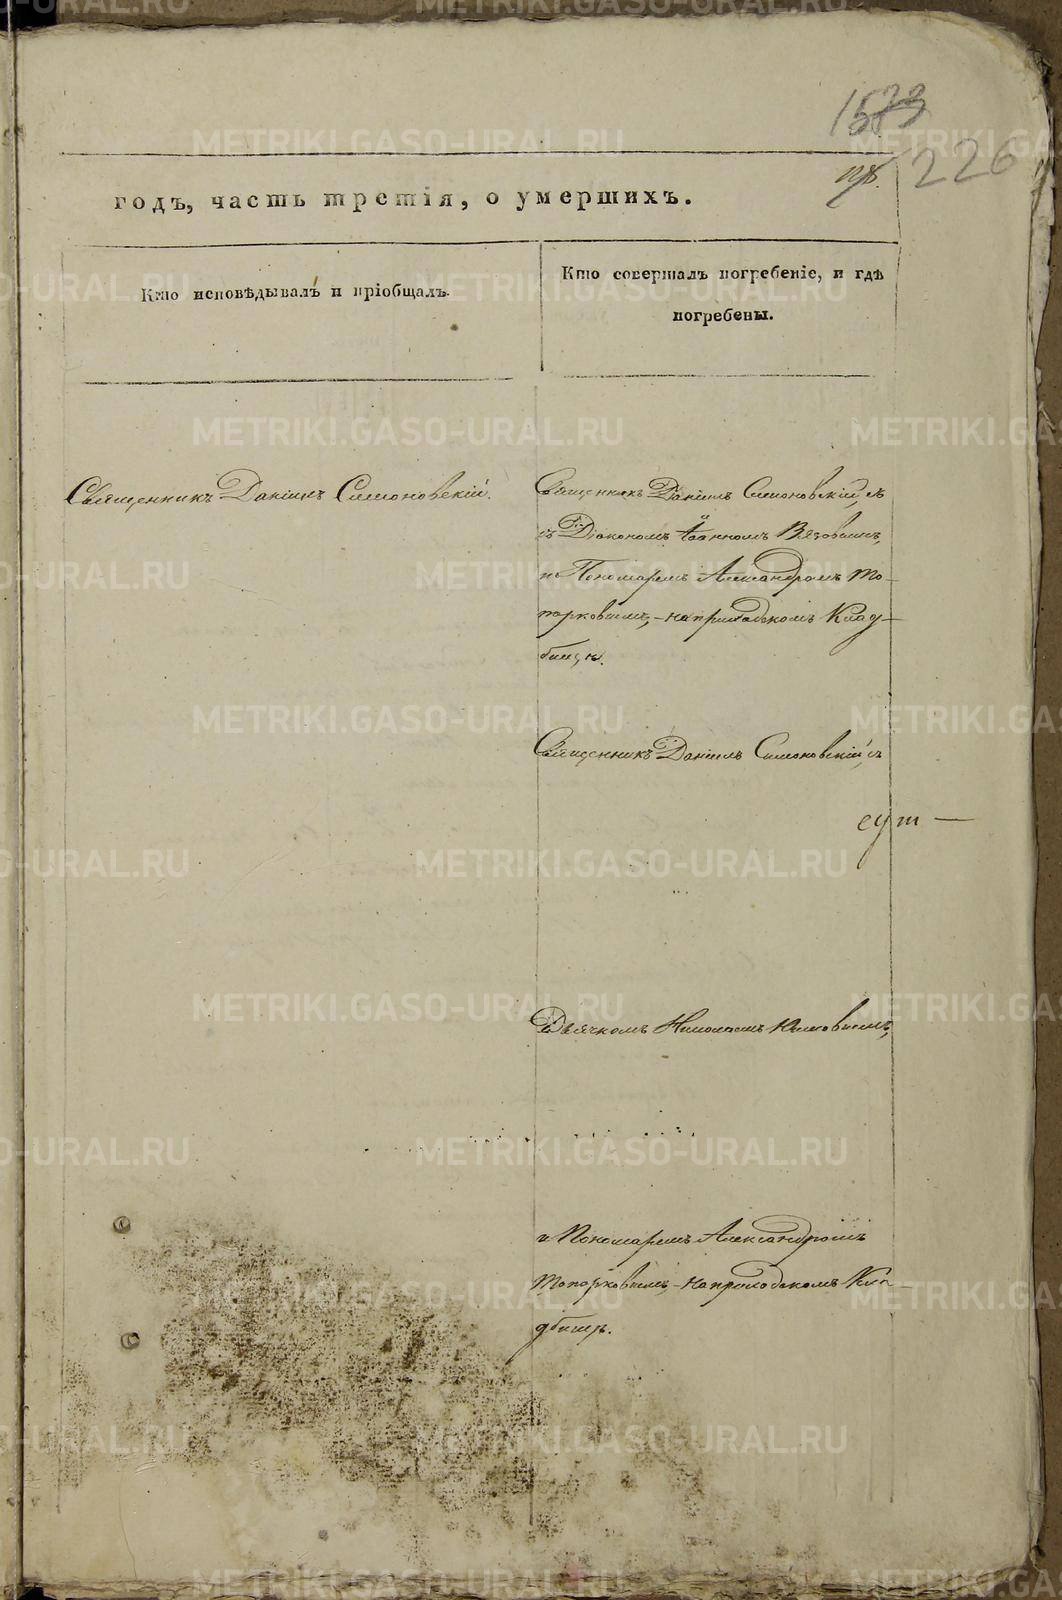 1573
226
годъ, часть третія, о умершихъ.
Кто исповѣдывалъ и пріобщалъ.
Кто совершалъ погребеніе, и гдѣ
погребены.
Священникъ Даніилъ Симоновскій.
Священникъ Даніилъ Симоновскій, съ
Діакономъ Іоанномъ Вязовымъ,
и Пономаремъ Александромъ То-
порковымъ, - на приходскомъ Клад-
бищѣ.
Священникъ Даніилъ Симоновскій, съ
Дьячкомъ
и Пономаремъ Александромъ
Топорковымъ, - на приходскомъ Кла-
дбищѣ.
METRIKI.GASO-URAL.RU